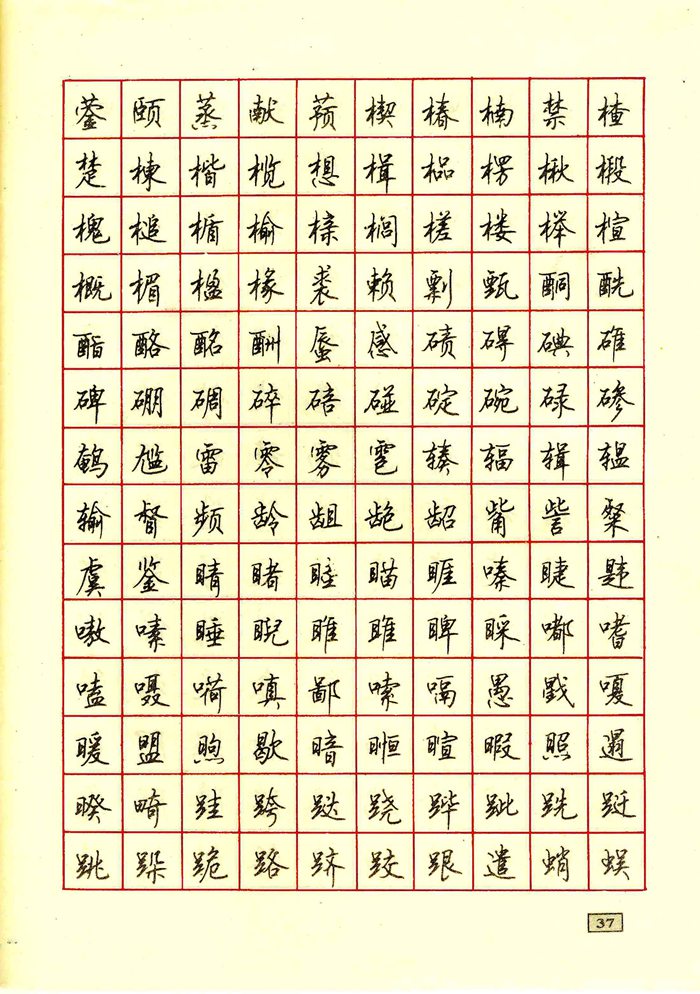 蓥颐蒸献蓣楔椿楠禁楂
楚楝楷榄想楫榀楞楸椴
槐槌楯榆榇榈槎楼榉楦
概楣楹椽裘赖剽甄酮酰
酯酪酩酬蜃感碛碍碘碓
碑硼碉碎碚碰碇碗碌碜
鹌尴雷零雾雹辏辐辑辒
输督频龄龃龅龆觜訾粲
虞鉴睛睹睦瞄睚嗪睫韪
嗷嗉睡睨睢雎睥睬嘟嗜
嗑嗫嗬嗔鄙嗦嗝愚戥嗄
暖盟煦歇暗暅暄暇照遢
暌畸跬跨跶跷跸跐跣跹
跳跺跪路跻跤跟遣蛸蜈
37